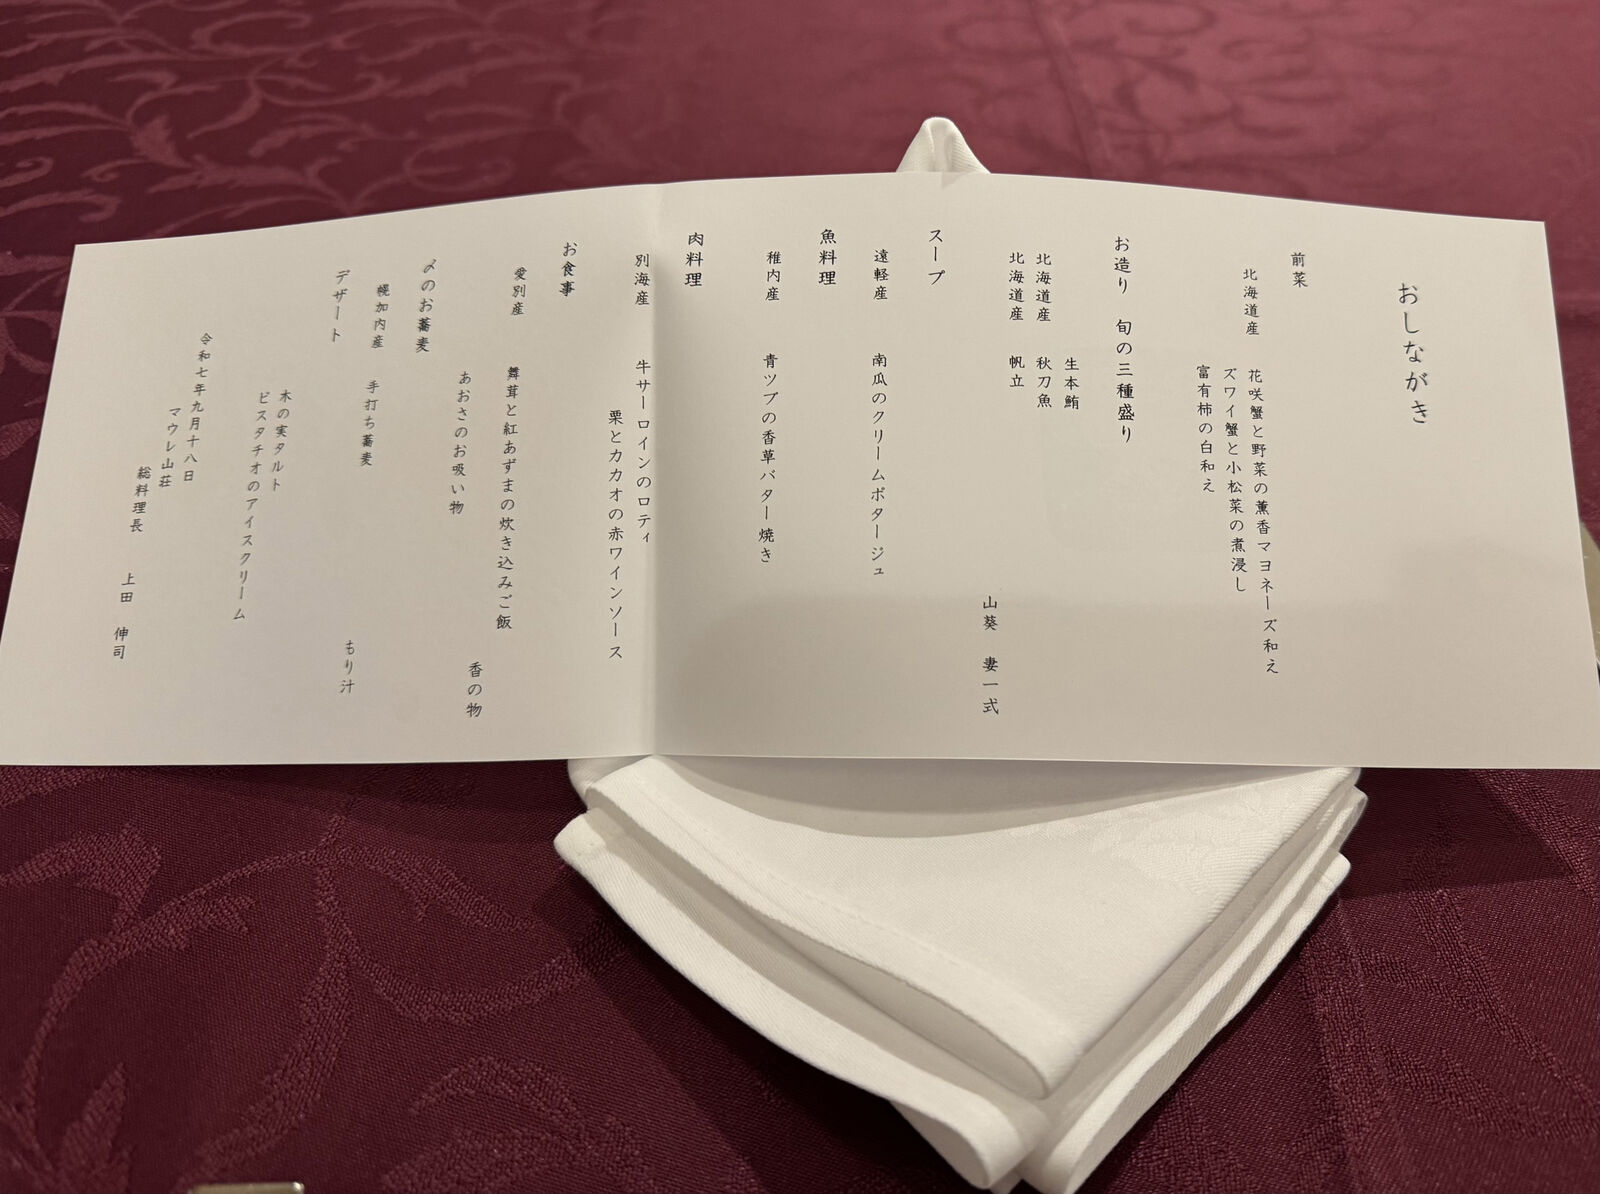 おしながき
前菜
北海道産 花咲蟹と野菜の薫香マヨネーズ和え
ズワイ蟹と小松菜の煮浸し
富有柿の白和え
お造り 旬の三種盛り
生本鮪
北海道産 秋刀魚
北海道産 帆立
山葵 妻一式
スープ
遠軽産 南瓜のクリームポタージュ
魚料理
稚内産 青ツブの香草バター焼き
肉料理
別海産 牛サーロインのロティ
栗とカカオの赤ワインソース
お食事
愛別産 舞茸と紅あずまの炊き込みご飯
香の物
あおさのお吸い物
〆のお蕎麦
幌加内産 手打ち蕎麦
もり汁
デザート
木の実タルト
ピスタチオのアイスクリーム
令和七年九月十八日
マウレ山荘
総料理長 上田 伸司